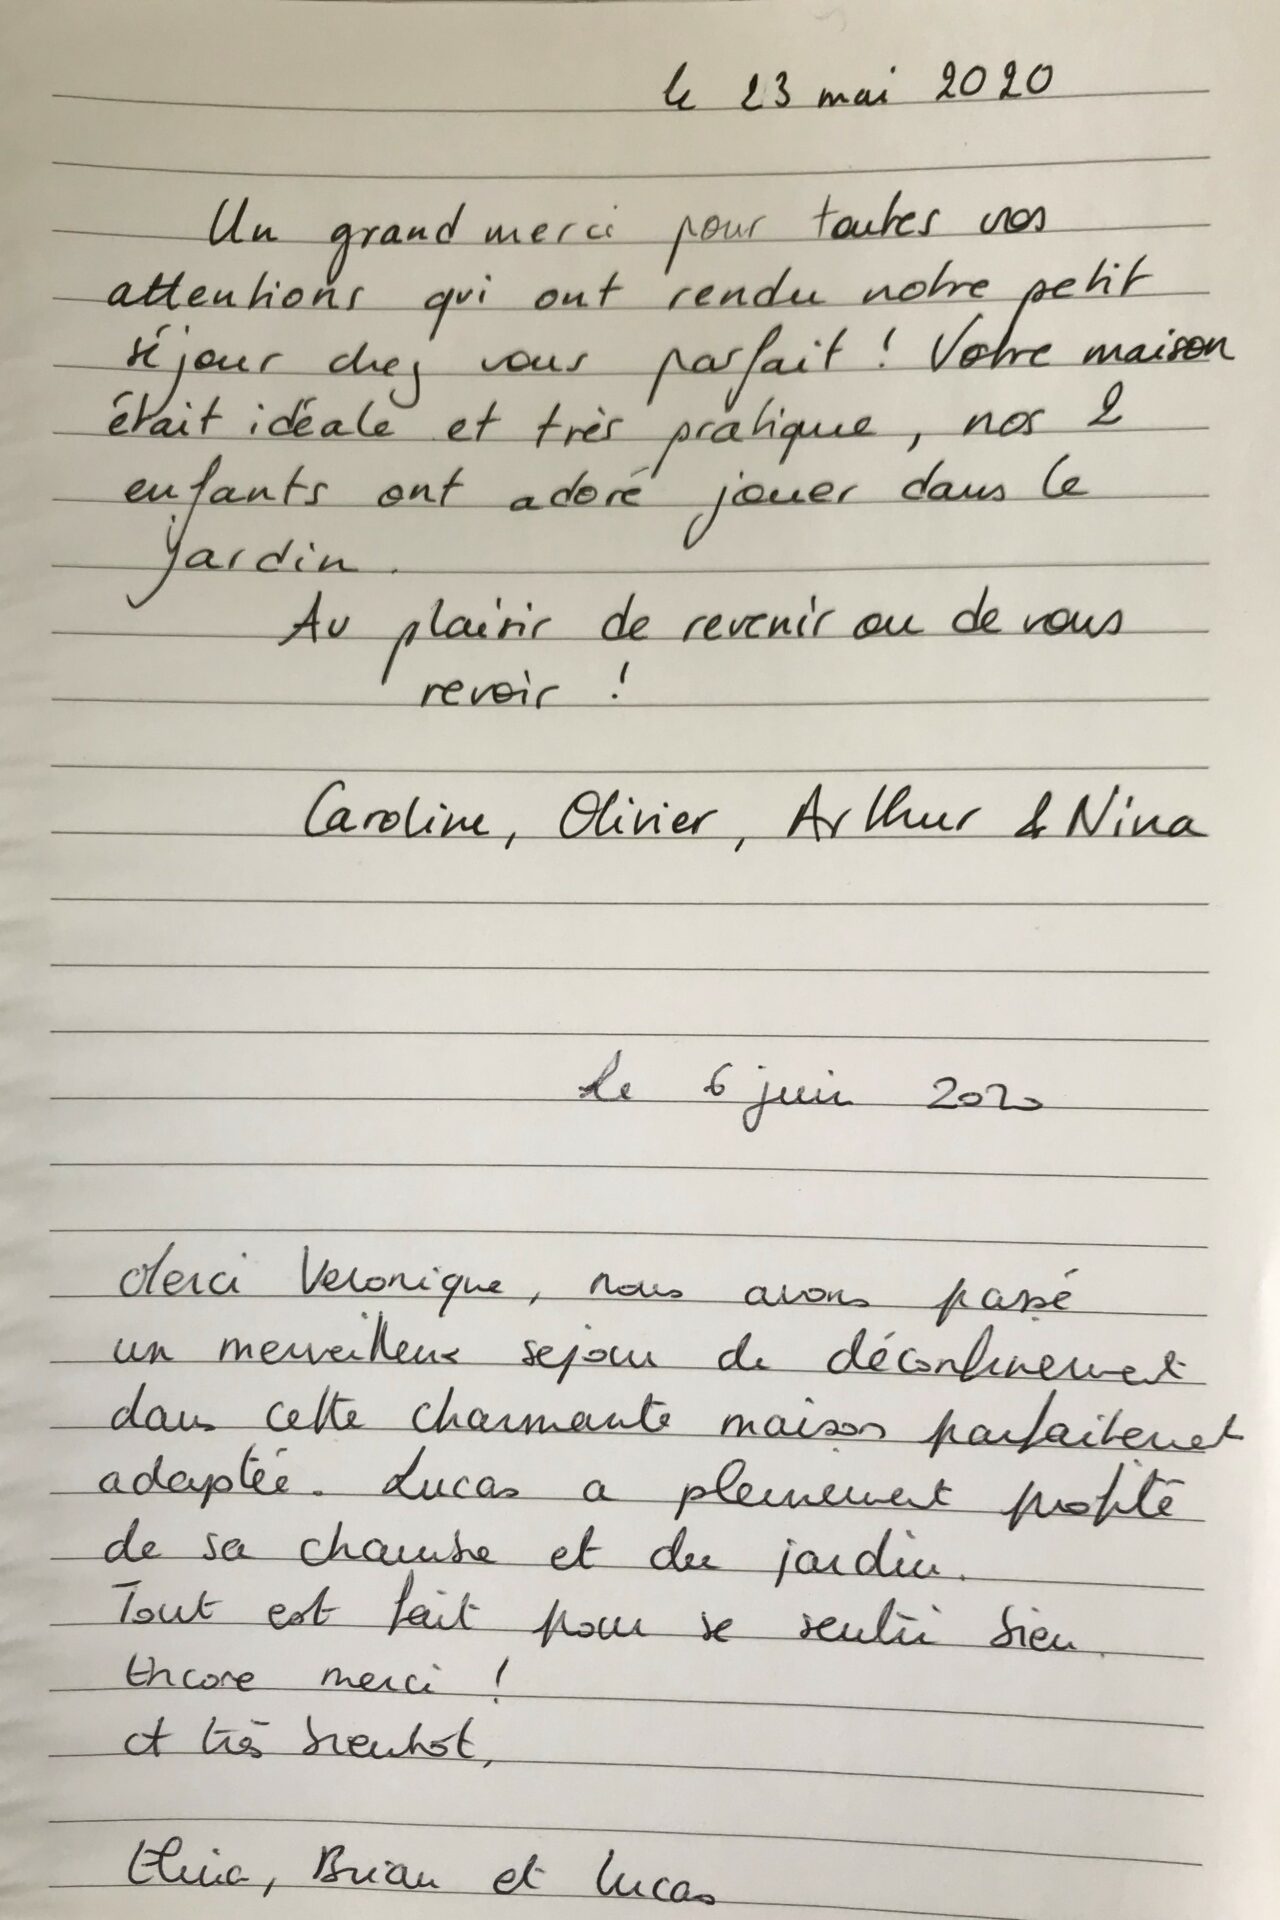 le 23 mai 2020
Un grand merci pour toutes vos
attentions qui ont rendu notre petit
séjour chez vous parfait ! Votre maison
était idéale et très pratique, nos 2
enfants ont adoré jouer dans le
jardin.
Au plaisir de revenir ou de vous
revoir !
Caroline, Olivier, Arthur & Nina
Le 6 juin 2020
Merci Veronique, nous avons passé
un merveilleux sejour de déconfinement
dans cette charmante maison parfaitement
adaptée. Lucas a pleinement profité
de sa chambre et du jardin.
Tout est fait pour se sentir bien.
Encore merci !
A très bientot,
Brian et Lucas